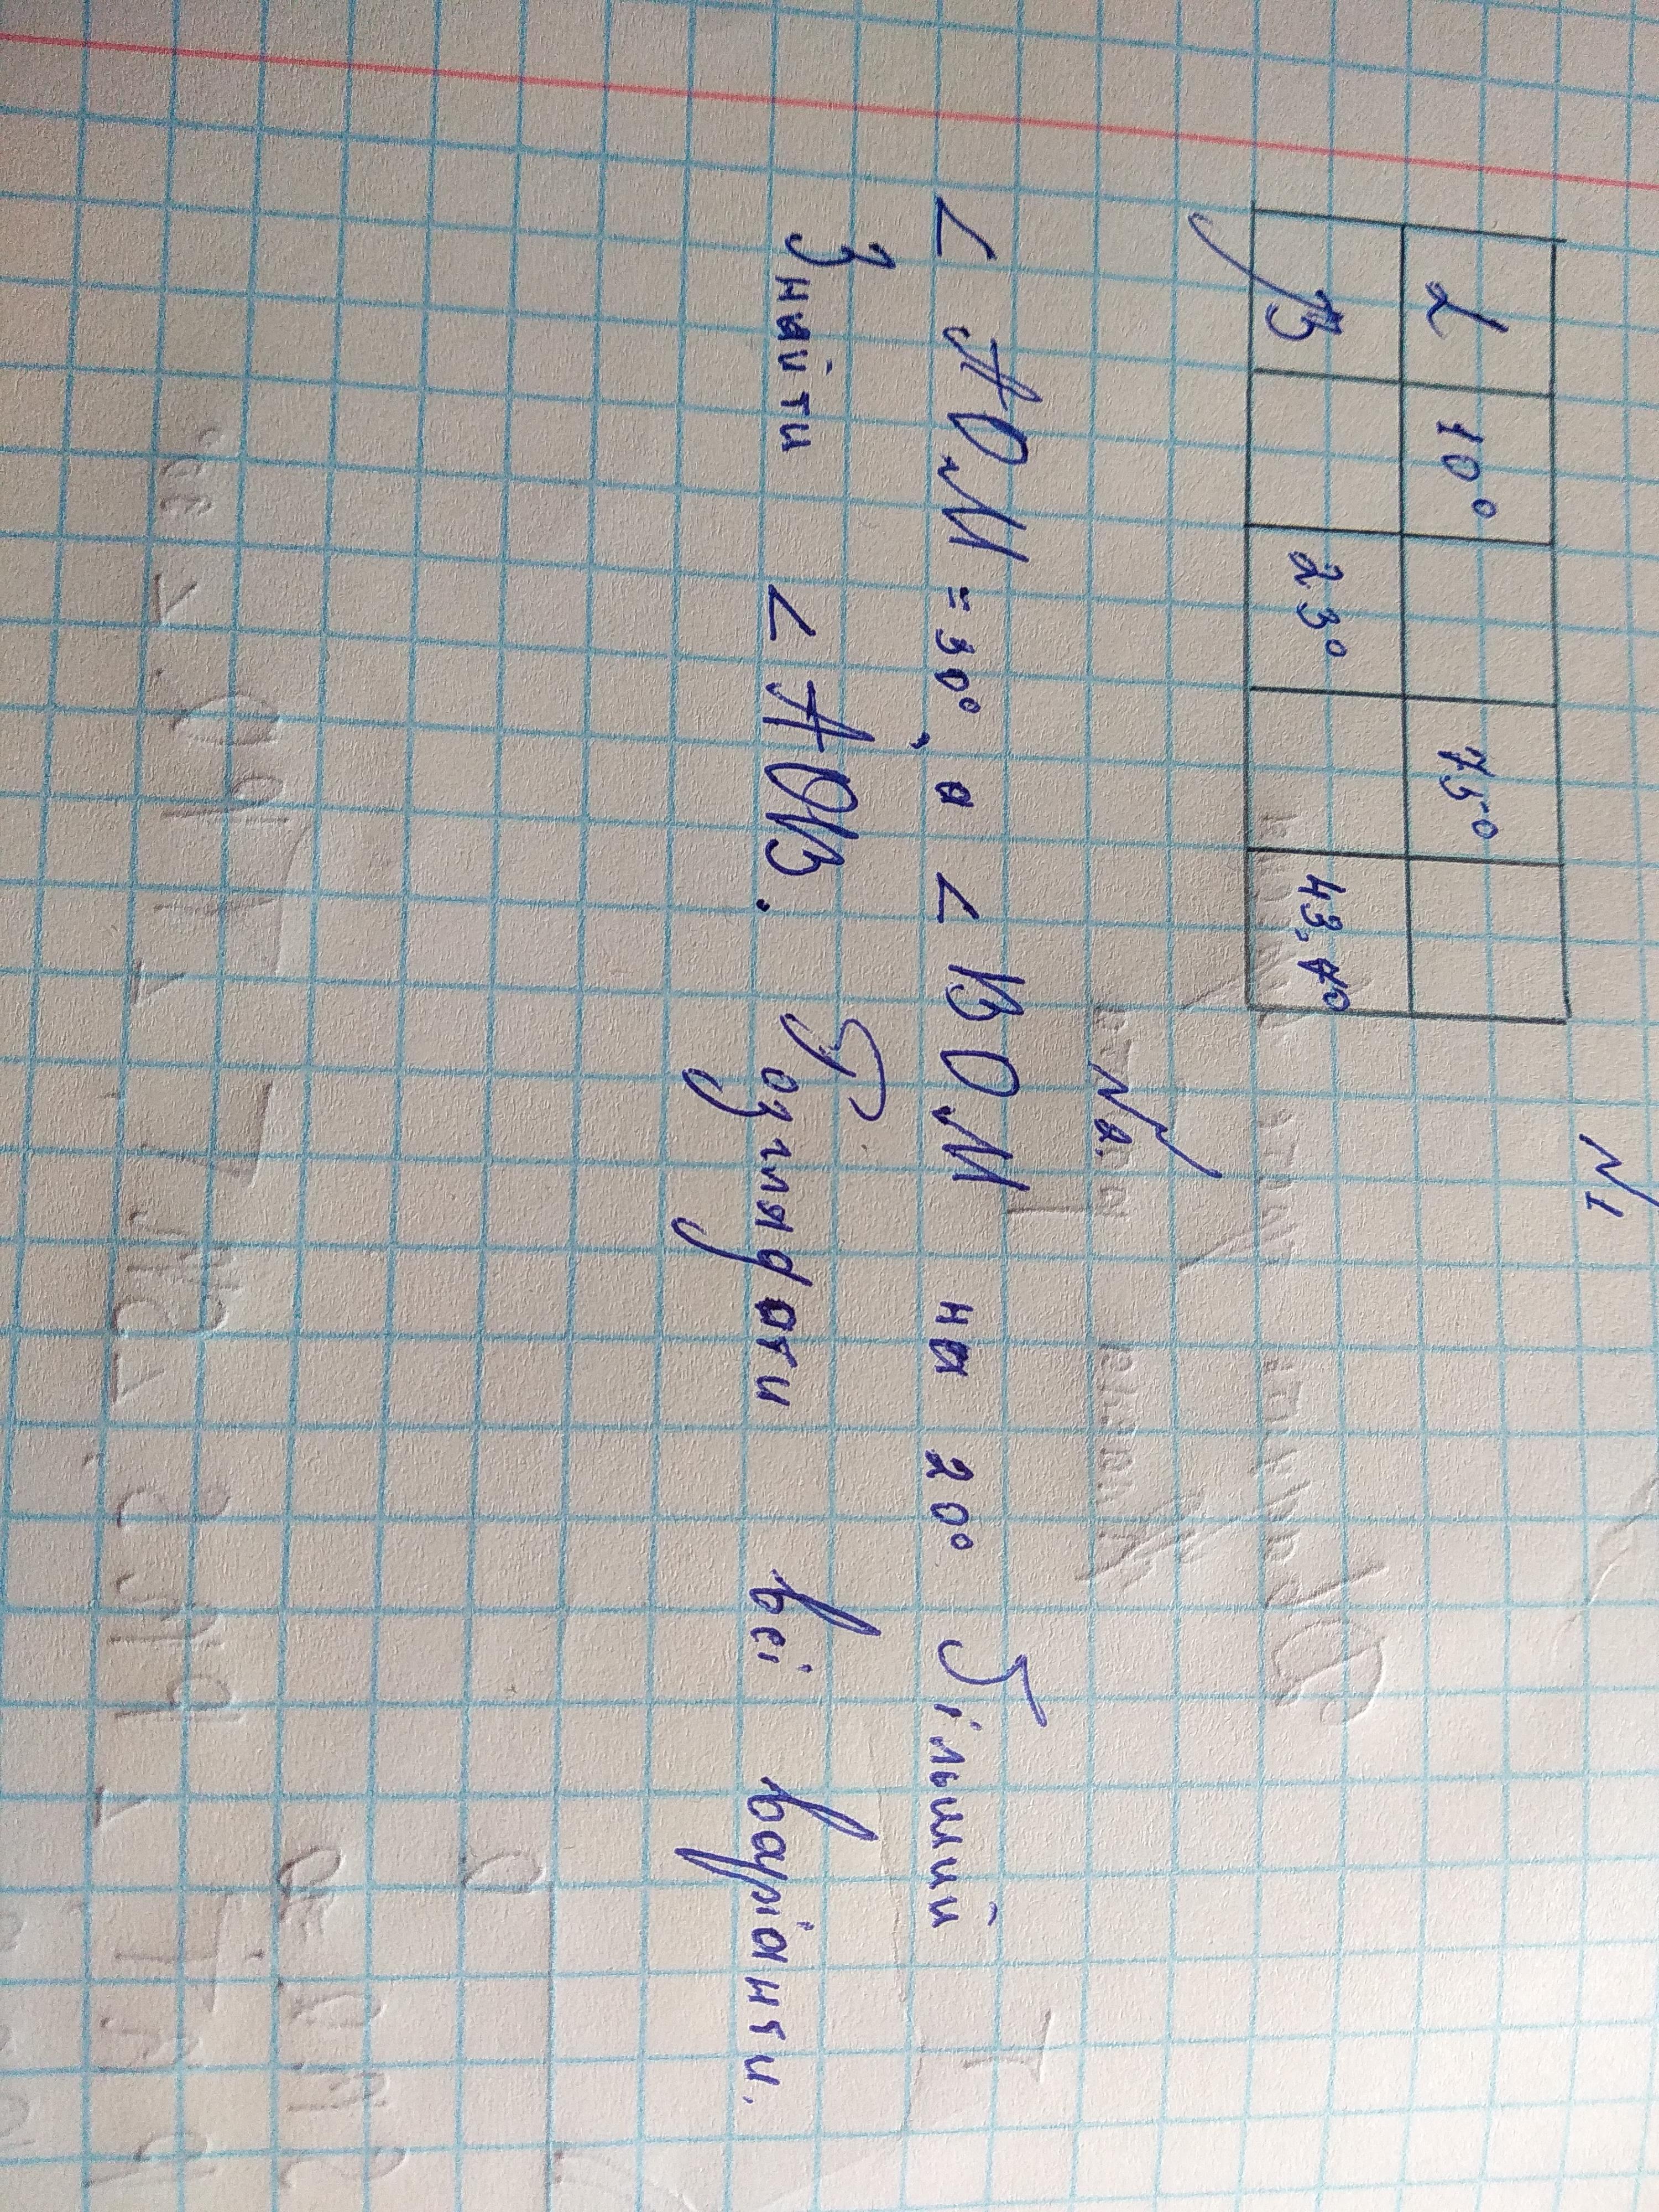 N1
α 10° 75°
β 23° 43,4°
N2.
∠ AOM = 30°, а ∠ BOM на 20° більший
Знайти ∠ AOB. Розглядати всі варіанти.